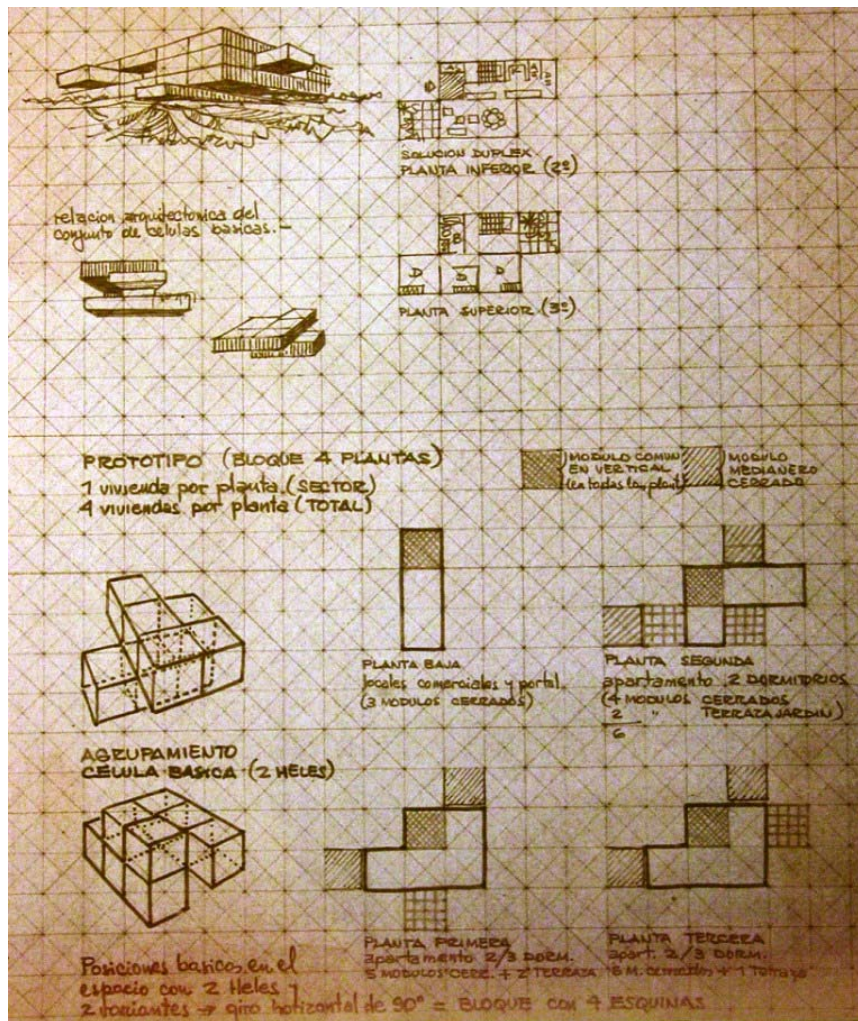 SOLUCION DUPLEX
PLANTA INFERIOR (2ª)
relacion arquitectonica del
conjunto de celulas basicas.-
D D D
PLANTA SUPERIOR (3ª)
PROTOTIPO (BLOQUE 4 PLANTAS)
1 vivienda por planta (SECTOR)
4 viviendas por planta (TOTAL)
MODULO COMUN
EN VERTICAL
(en todas las plant)
MODULO
MEDIANERO
CERRADO
PLANTA BAJA
locales comerciales y portal
(3 MODULOS CERRADOS)
PLANTA SEGUNDA
apartamento 2 DORMITORIOS
(4 MODULOS CERRADOS
2 " TERRAZA JARDIN)
6
AGRUPAMIENTO
CELULA BASICA (2 HELES)
PLANTA PRIMERA
apartamento 2/3 DORM.
5 MODULOS CERR. + 2 TERRAZA
PLANTA TERCERA
apart. 2/3 DORM.
M. cerrados + 1 Terraza
Posiciones basicas en el
espacio con 2 Heles y
2 variantes → giro horizontal de 90° = BLOQUE CON 4 ESQUINAS